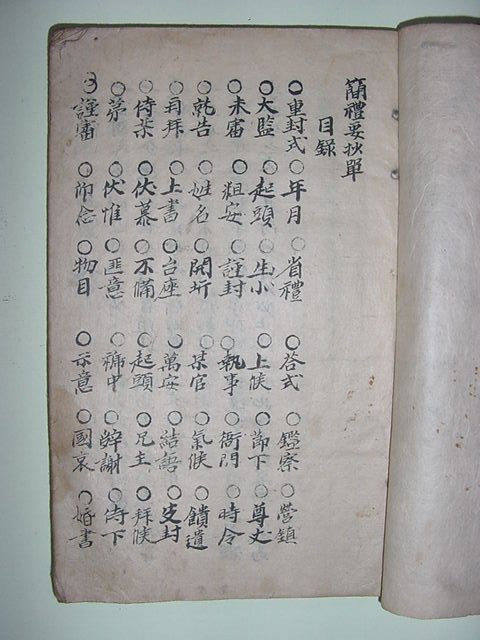 簡禮要抄單
目録
○重封式○年月○省禮○答式○鑑察○營鎮
○大監○起頭○生小○上候○節下○尊丈
○未審○粗安○謹封○執事○衙門○時令
○就告○姓名○開坼○某官○氣候○饋遺
○再拜○上書○台座○萬安○結語○皮封
○侍柒○伏慕○不備○起頭○兄主○拜候
○茅○伏惟○匪意○褊中○辭謝○侍下
○謹審○仰念○物目○示意○國哀○婚書